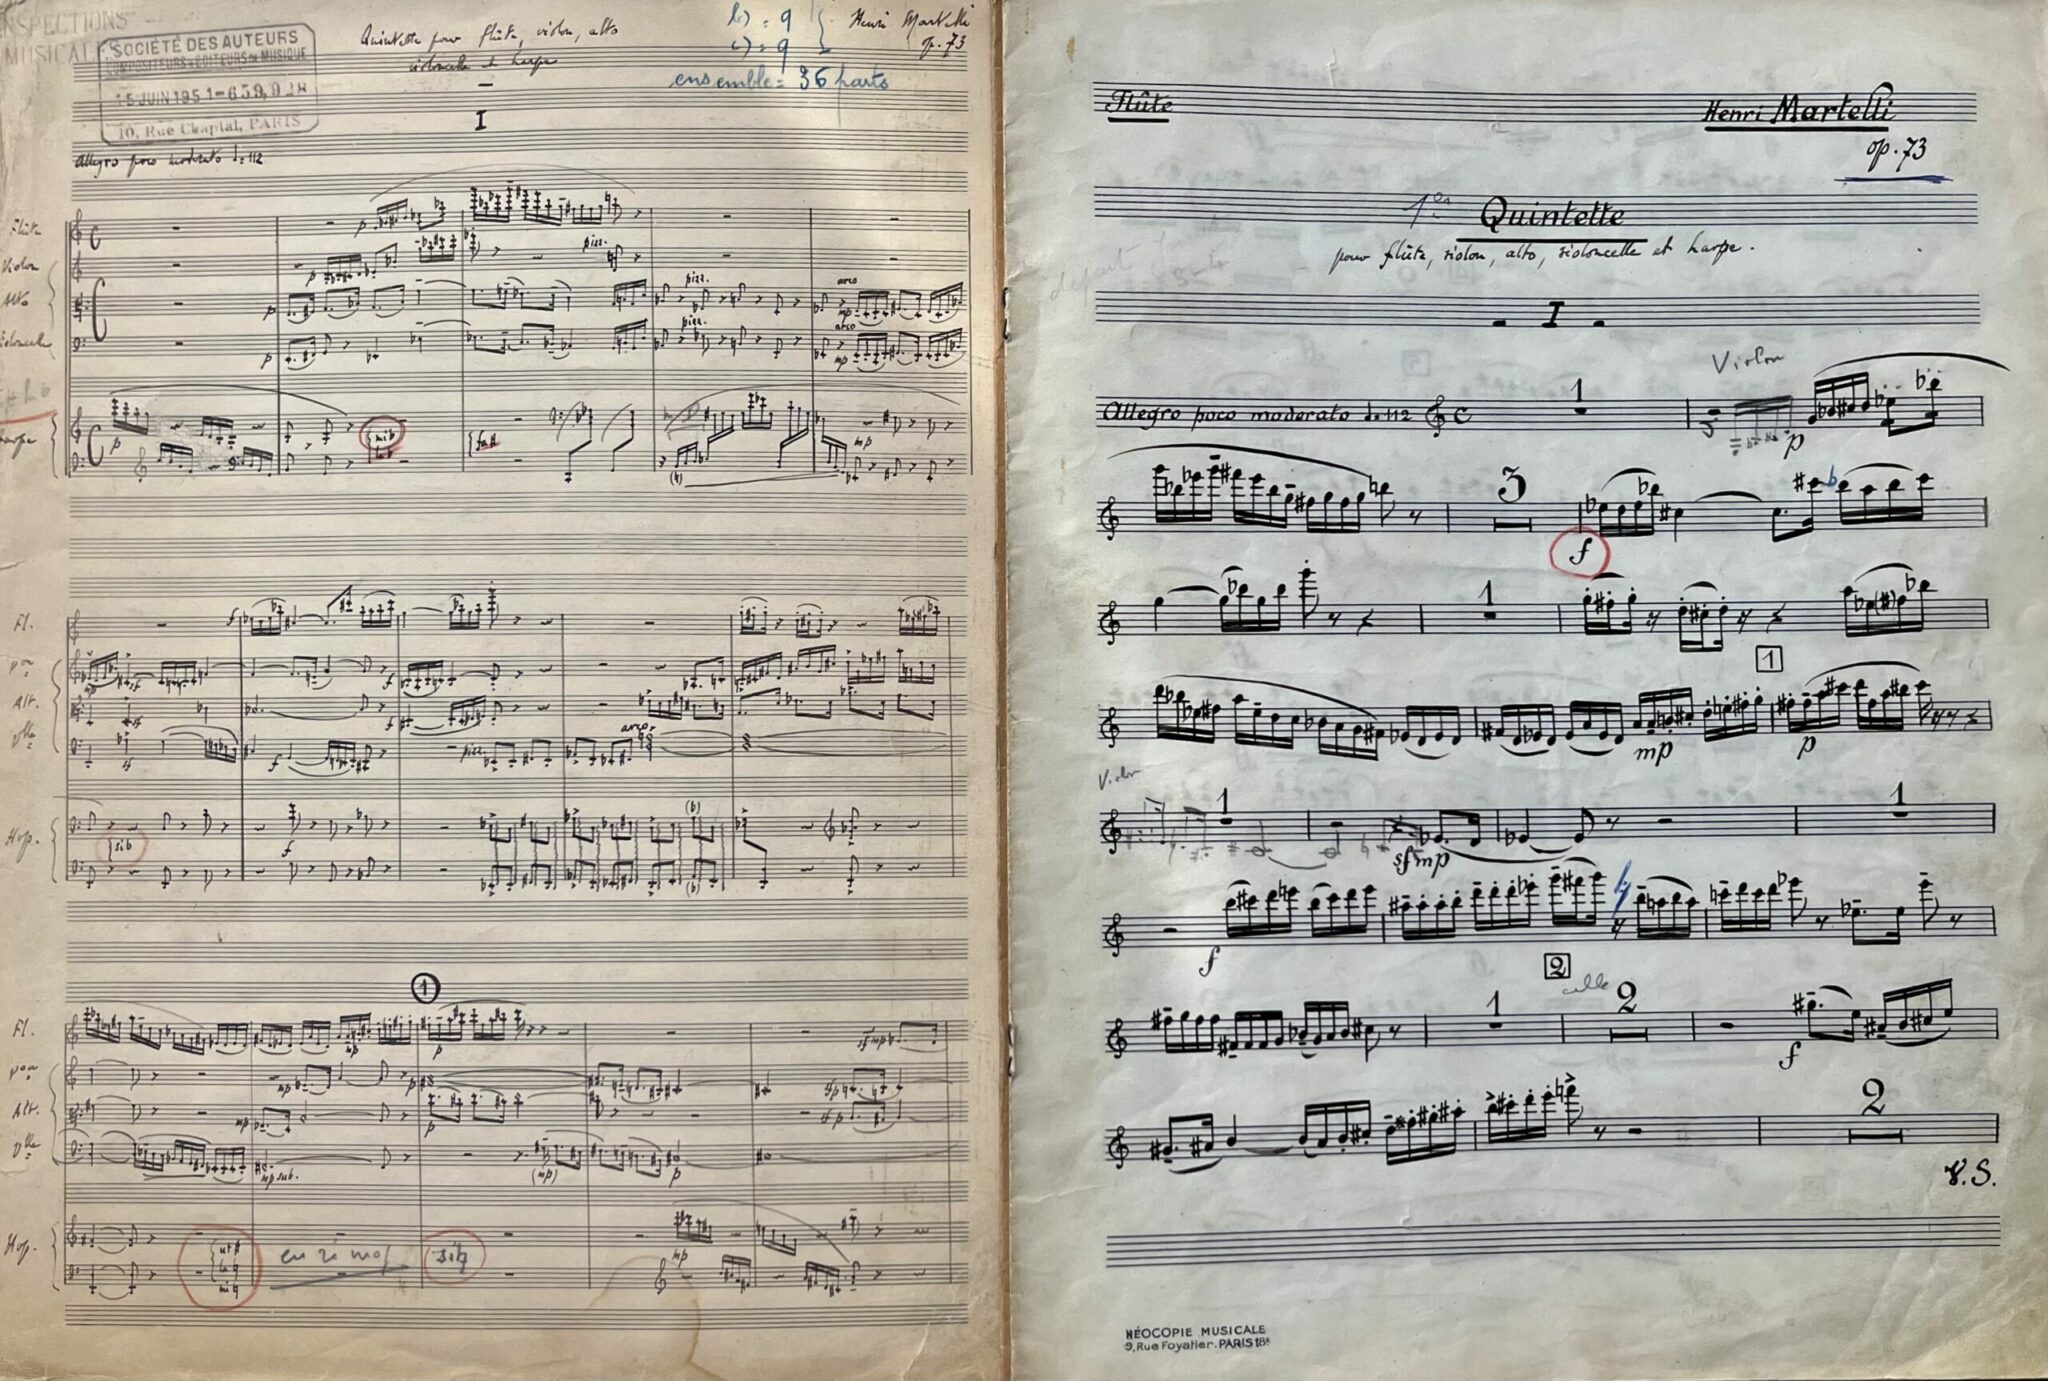 INSPECTIONS
MUSICALE
SOCIÉTÉ DES AUTEURS
COMPOSITEURS & ÉDITEURS DE MUSIQUE
15 JUIN 1951-659,928
10, Rue Chaptal, PARIS
Quintette pour flûte, violon, alto
violoncelle et harpe
b) = 9
c) = 9
ensemble = 36 parts
Henri Martelli
op. 73
I
Allegro poco moderato ♩=112
Flûte
Violon
Alto
Violoncelle
Harpe
p
p
pizz.
p
pizz.
arco
mp
p
pizz.
arco
mp
p
mi♭
la♭
fa#
mp
Fl.
Von
Alt.
Vlle
Hop.
f
mp
sf
f
sf
f
sf
f
pizz.
arco
si♭
f
1
Fl.
Von
Alt.
Vlle
Hop.
mp
p
sfmp
mp
p
mp
p
mp sub.
(mp)
p
ut#
la♮
mi♮
si♮
mp
Flûte
Henri Martelli
op. 73
1er Quintette
pour flûte, violon, alto, violoncelle et harpe.
I
Allegro poco moderato ♩=112
1
Violon
p
3
f
1
1
mp
p
Violon
1
sfmp
1
f
2
1
celle
2
f
2
V.S.
NÉOCOPIE MUSICALE
9, Rue Foyatier. PARIS 18e